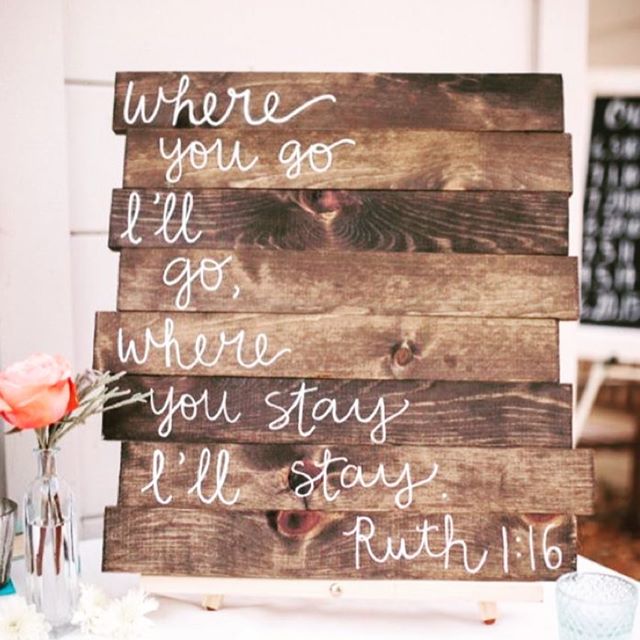 where
you go
I'll
go,
where
you stay
I'll stay.
Ruth 1:16